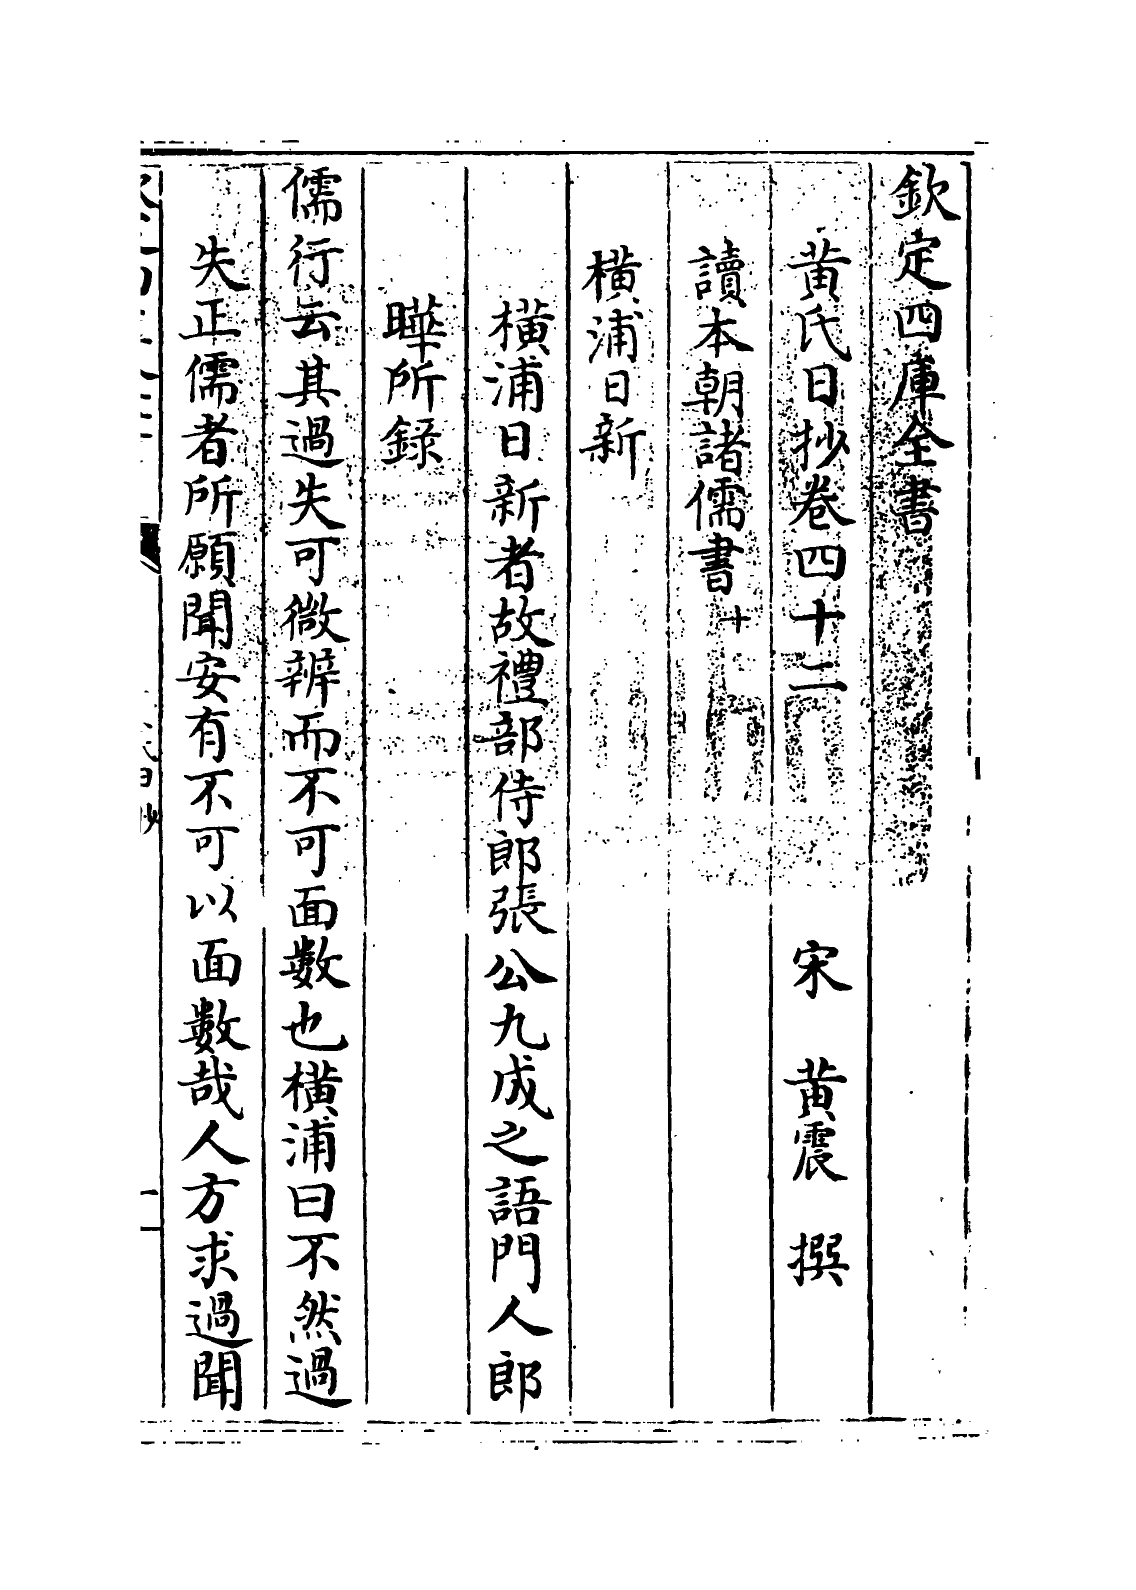 欽定四庫全書
黃氏日抄卷四十二　宋　黃震　撰
讀本朝諸儒書十
橫浦日新
橫浦日新者故禮部侍郎張公九成之語門人郎
曄所錄
儒行云其過失可微辨而不可面數也橫浦曰不然過
失正儒者所願聞安有不可以面數哉人方求過聞